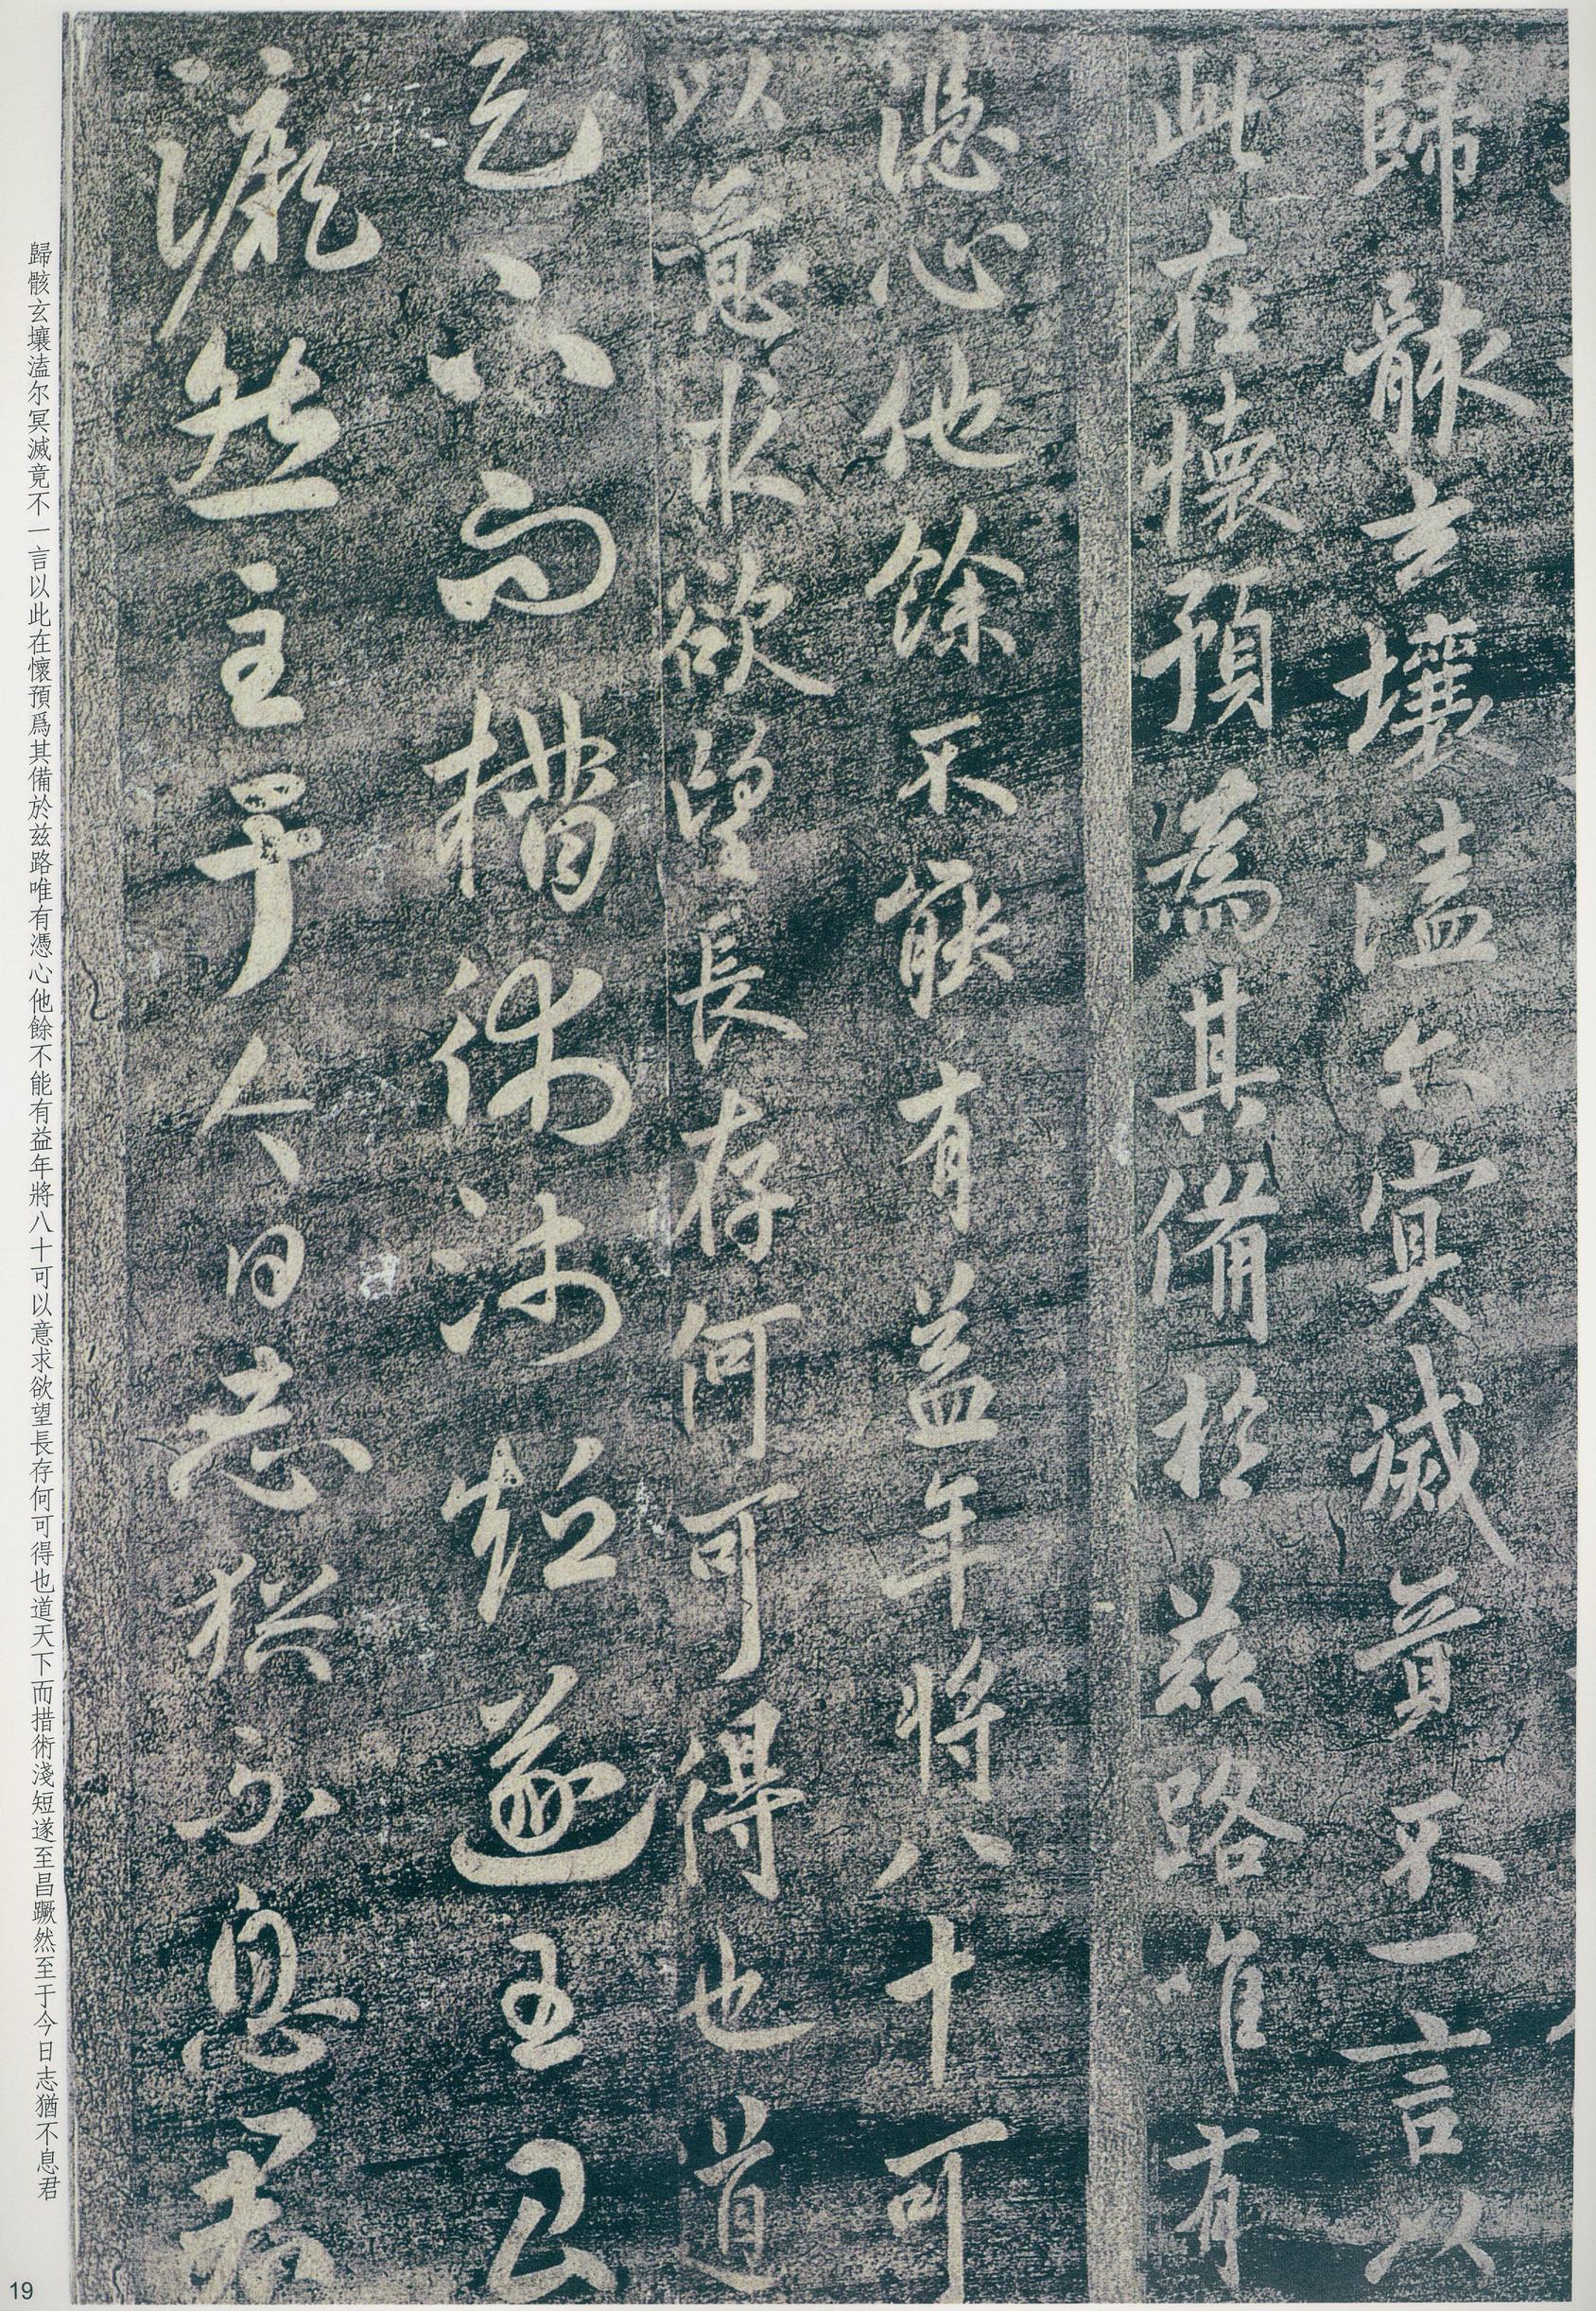 歸骸玄壤溘尔冥滅竟不一言以
此在懷預為其備於茲路唯有
憑心他餘不能有益年將八十可
以意求欲望長存何可得也道
天下而措術淺短遂至昌
蹶然至于今日志猶不息君
歸骸玄壤溘尔冥滅竟不一言以此在懷預爲其備於兹路唯有憑心他餘不能有益年將八十可以意求欲望長存何可得也道天下而措術淺短遂至昌蹶然至于今日志猶不息君
19